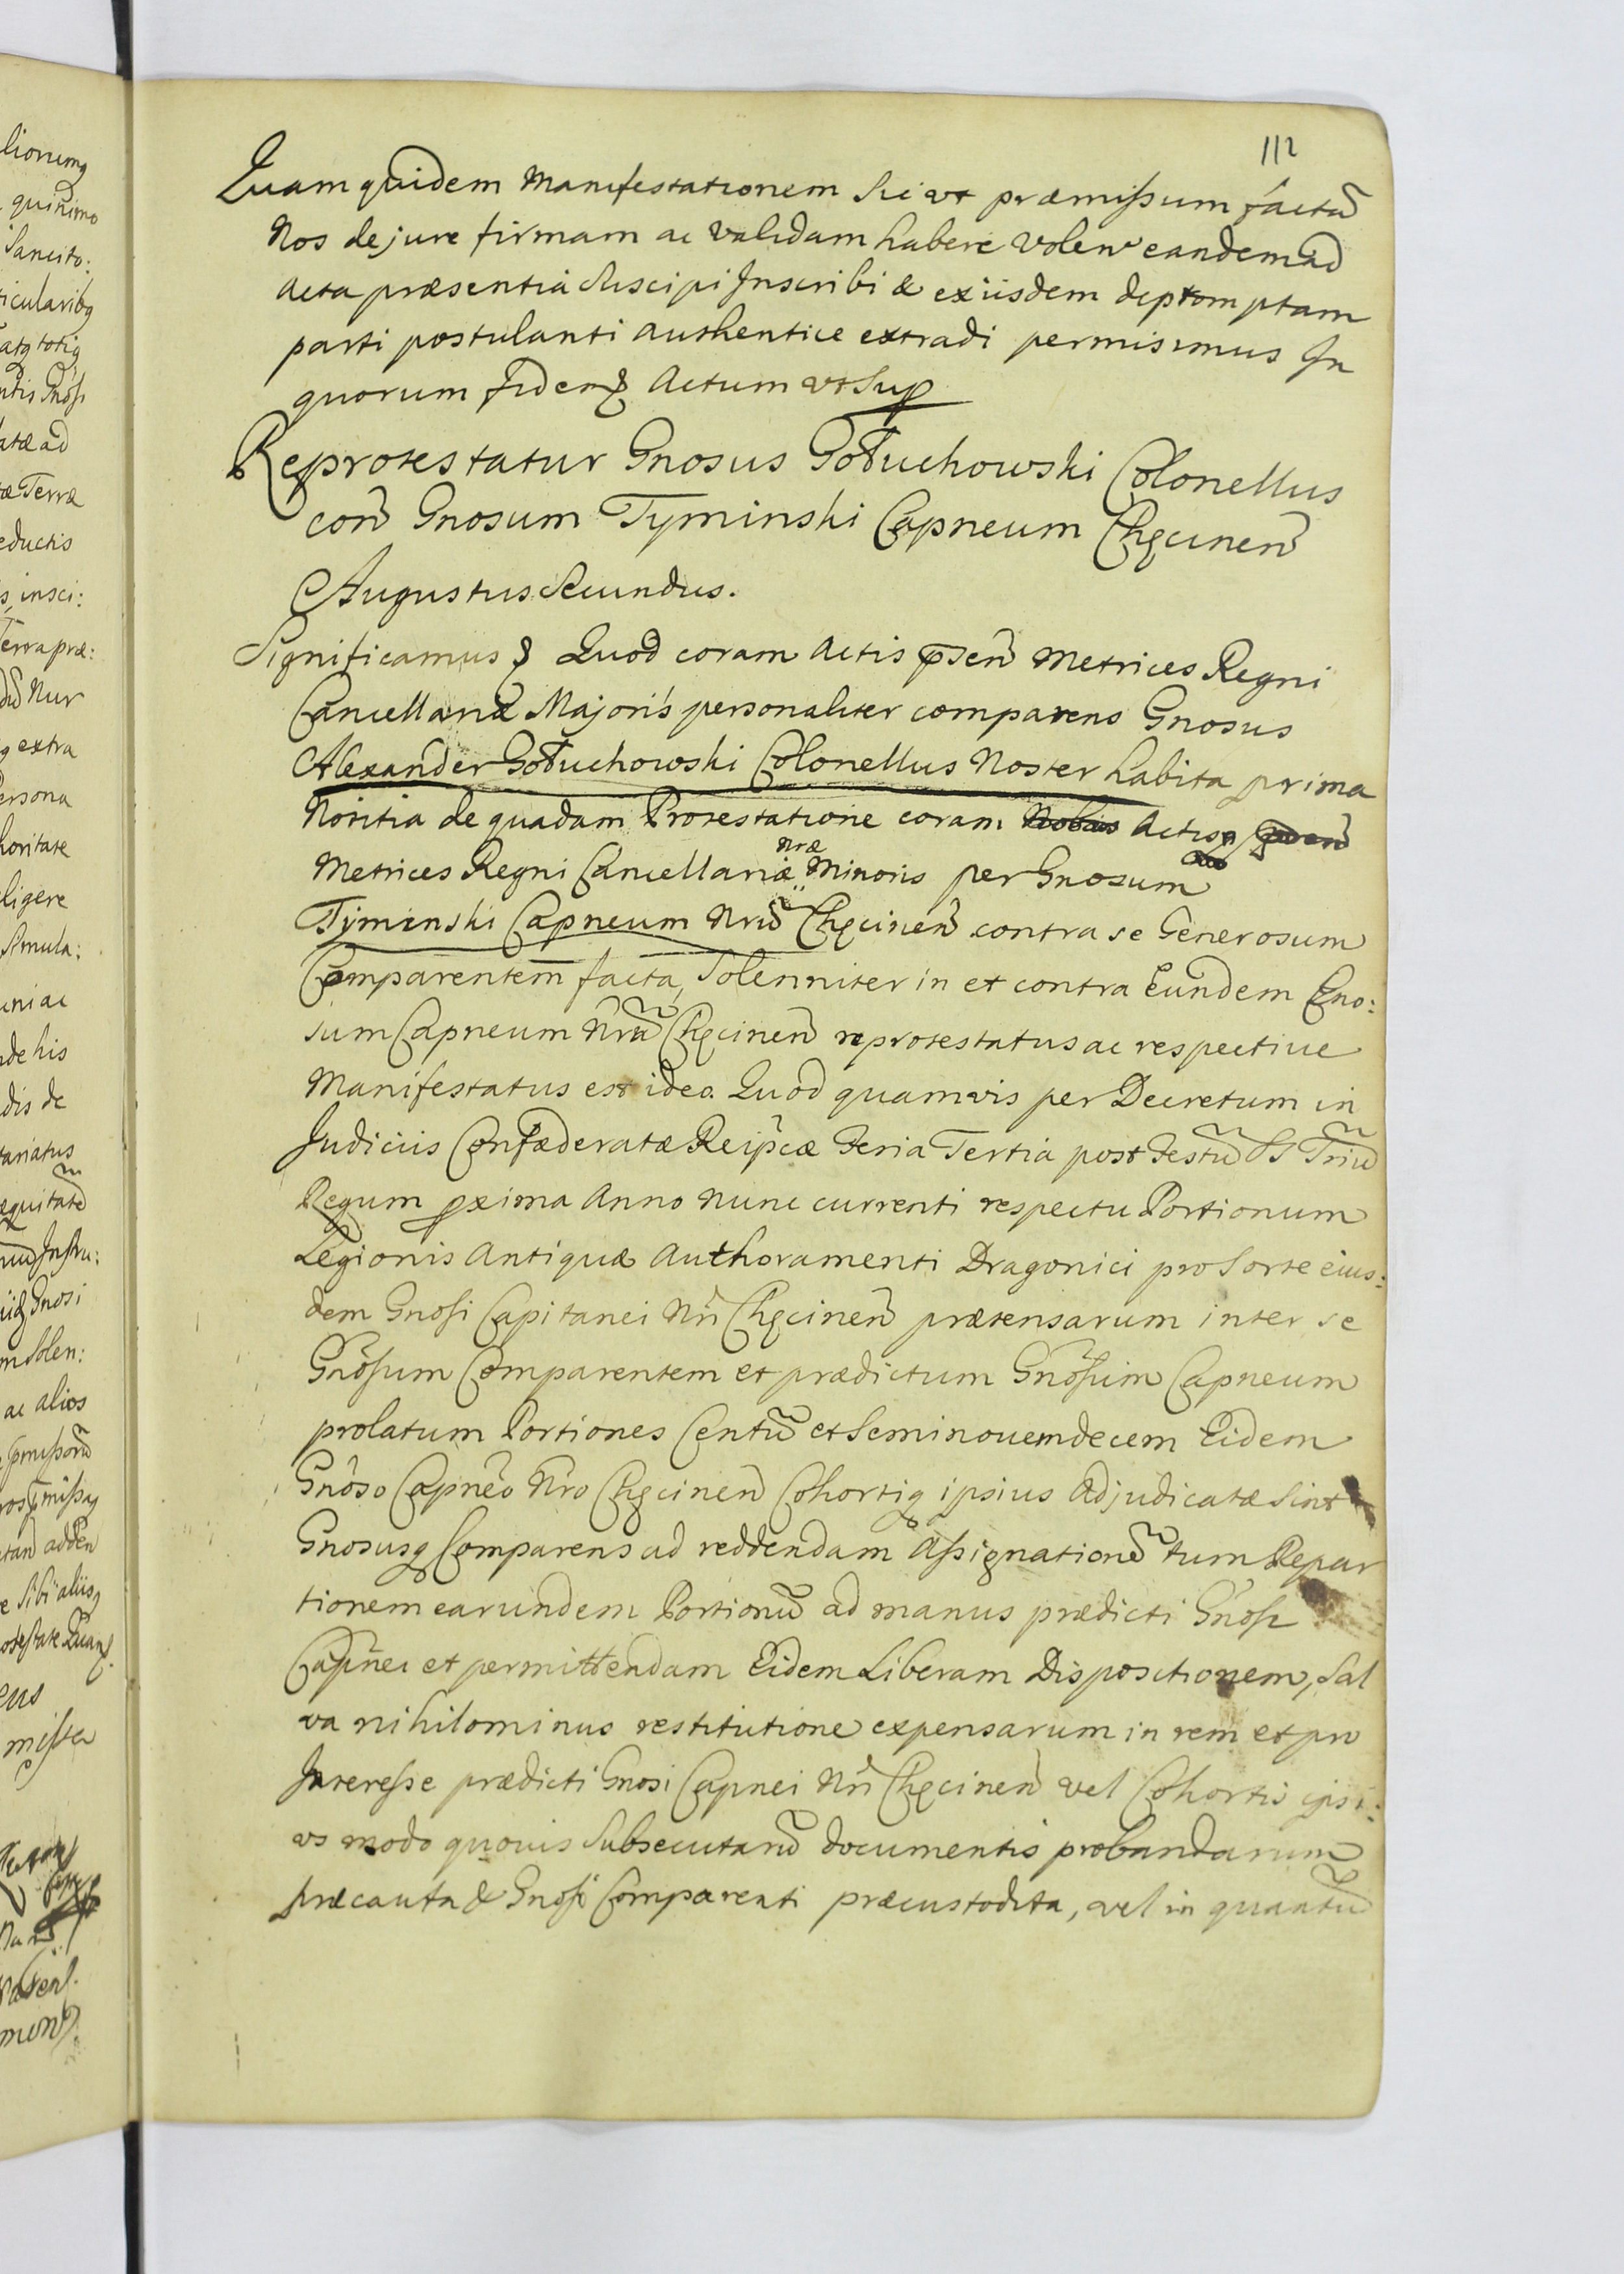 112
Quam quidem Manifestationem sic ut præmissum factã
Nos de jure firmam ac validam habere volen̄ eandem ad
Acta præsentia suscipi Inscribi & ex iisdem depromptam
parti postulanti authentice extradi permisimus In
quorum fidem & Actum ut sup
Reprotestatur Gnosus Gołuchowski Colonellus
con̄ Gnosum Tyminski Capneum Chęcinen̄
Augustus Secundus.
Significamus & Quod coram Actis p̄sen̄ Metrices Regni
Cancellariæ Majoris personaliter comparens Gnosus
Alexander Gołuchowski Colonellus Noster habita prima
Notitia de quadam Protestatione coram Nobis Actis
Metrices Regni Cancellariæ Nræ Minoris per Gnosum
Tyminski Capneum Nrũ Chęcinen̄ contra se Generosum
Comparentem facta, Solenniter in et contra Eundem Gno:
sum Capneum Nrũ Chęcinen̄ reprotestatus ac respective
Manifestatus est ideo. Quod quamvis per Decretum in
Judiciis Confæderatæ Reipcæ Feria Tertia post Festũ SS Triũ
Regum pxima Anno Nunc currenti respectu Portionum
Legionis Antiquæ Authoramenti Dragonici pro Sorte eius:
dem Gnosi Capitanei Nri Chęcinen̄ prætensarum inter se
Gnosum Comparentem et prædictum Gnosum Capneum
prolatum Portiones Centũ et Seminovemdecem Eidem
Gnoso Capneo Nro Chęcinen̄ Cohortiq ipsius Adjudicatæ sint
Gnosusq Comparens ad reddendam Assignationẽ tum Repar
tionem earundem Portionũ ad manus prædicti Gnosi
Capnei et permittendam Eidem Liberam Dispositionem, Sal
va nihilominus restitutione expensarum in rem et pro
Interesse prædicti Gnosi Capnei Nri Chęcinen̄ vel Cohortis ipsi:
us modo quovis subsecutarũ documentis probandarum
præcauta & Gnosi Comparenti præcustodita, vel in quantũ